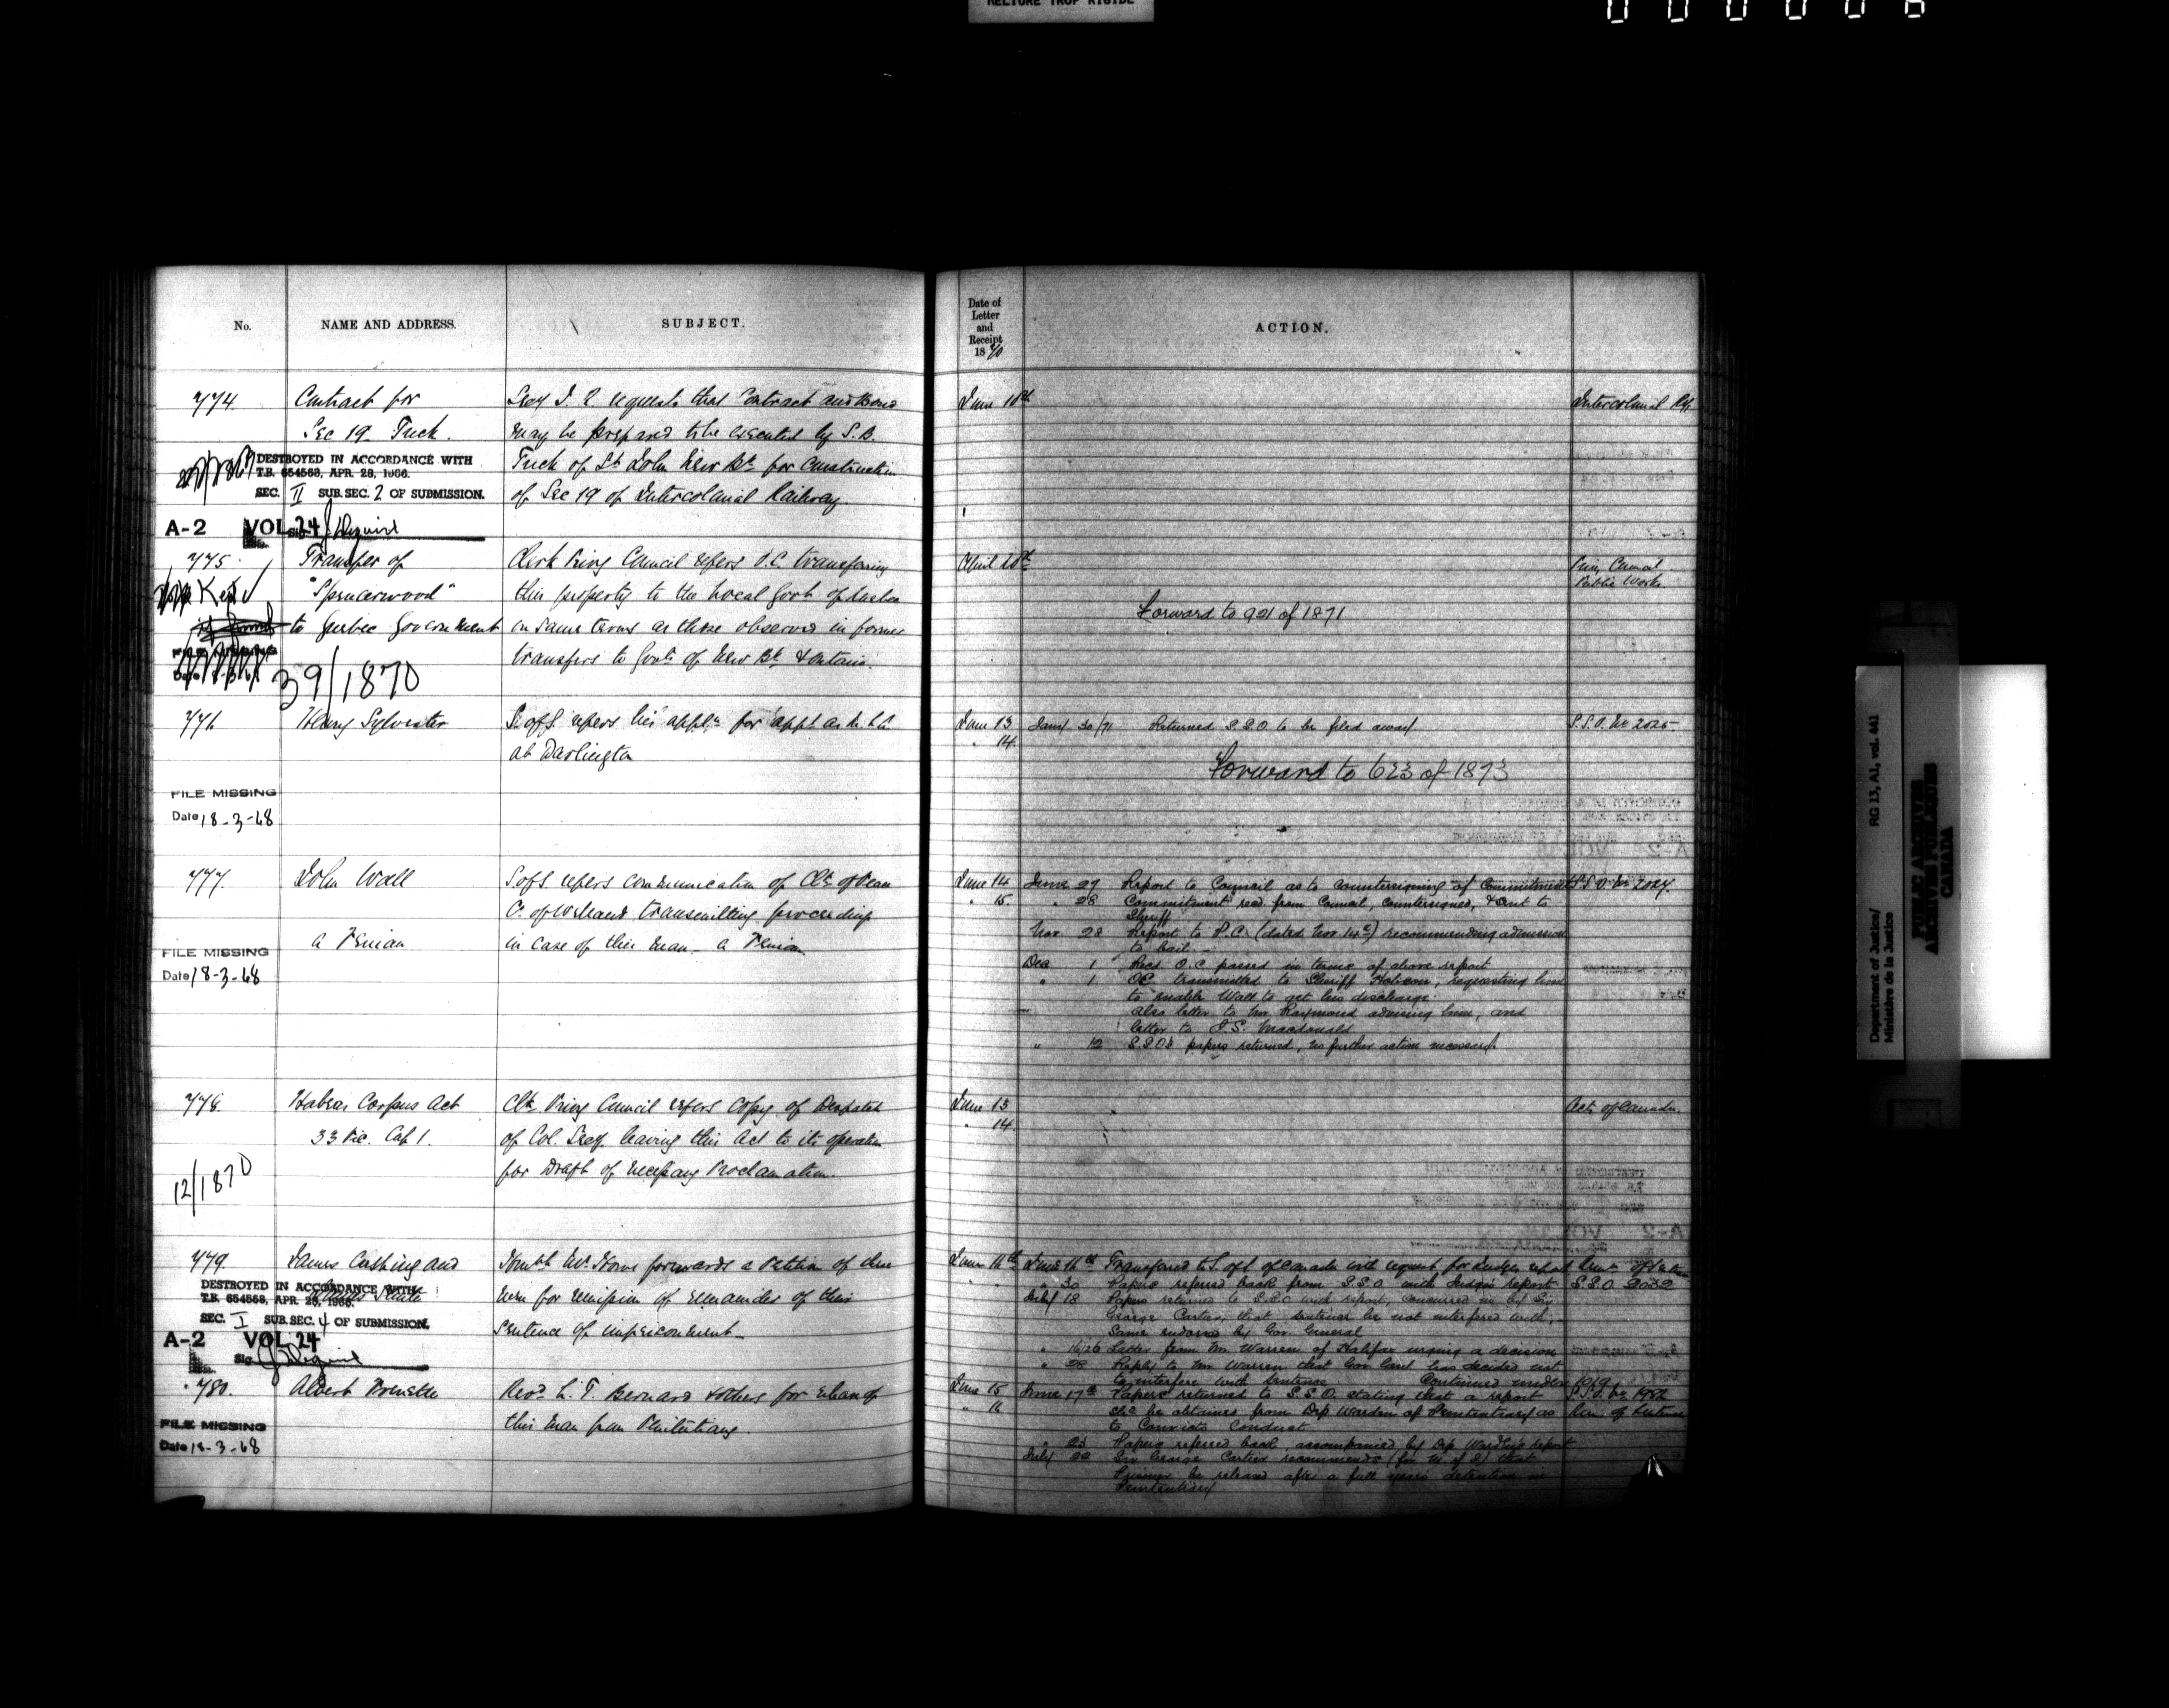 RELIURE TROP RIGIDE
No.
NAME AND ADDRESS.
SUBJECT.
Date of
Letter
and
Receipt
1870
ACTION.
774
Contract for
Sec 19 Tuck.
Secy I. R. requests that Contract and Bond
may be prepared to be executed by S. B.
Tuck of St John New Bk for Construction
of Sec 19 of Intercolonial Railway.
June 10th
Intercolonial Ry.
DESTROYED IN ACCORDANCE WITH
T.B. 654563, APR. 28, 1966.
SEC. II SUB. SEC. 2 OF SUBMISSION.
A-2 VOL. 24
775
Transfer of
"Spencerwood"
to Quebec Government
39/1870
Clerk Privy Council refers O.C. transferring
this property to the Local Govt of Quebec
on same terms as those observed in former
transfers to Govts of New Bk & Ontario.
April
Privy Council
Public Works
Forward to 921 of 1871
776
Henry Sylvester
S. of S. refers his appln for appt as
at Darlington
June 13
" 14
Jany 30/71 Returned S.S.O. to be filed away
S.S.O. No 2025
Forward to 623 of 1873
FILE MISSING
Date 18-3-68
777.
John Wall
a Fenian
S of S. refers communication of Clk of Peace
Co. of Welland transmitting proceedings
in case of this man - a Fenian
June 14
" 15
June 27 Report to Council as to countersigning of Commitment
" 28 Commitment recd from Council, countersigned, & sent to
Sheriff
Nov. 28 Report to P.C. (dated Nov. 14th) recommending admission
to bail.
Dec 1 Recd O.C. passed in terms of above report
" 1 OC transmitted to Sheriff Hobson, requesting him
to enable Wall to get his discharge.
also letter to Mr. Raymond advising him, and
letter to J.S. Macdonald
" 12 S.S.Os papers returned, no further action necessary
S.S.O. No 2027.
FILE MISSING
Date 18-3-68
778.
Habeas Corpus Act
33 Vic. Cap 1.
12/1870
Clk Privy Council refers copy of Despatch
of Col. Secy leaving this Act to its operation
for Draft of necessary Proclamation.
June 13
" 14
Acts of Canada.
779.
James Cushing and
Honble Mr. Howe forwards a Petition of these
men for remission of remainder of their
Sentence of imprisonment
June 16th
June 16th Transferred to S. of S. of Canada with request for Judges report
" 30 Papers referred back from S.S.O. with Judge's report
July 18 Papers returned to S.S.O with report, concurred in by Sir
George Cartier, that sentence be not interfered with,
Same endorsed by Gov. General
" 16/26 Letter from Mr. Warren of Halifax urging a decision
" 28 Reply to Mr Warren that Gov Genl has decided not
to interfere with Sentence Continued under 1019
S.S.O. 2032
DESTROYED IN ACCORDANCE WITH
T.B. 654563, APR. 28, 1966.
SEC. I SUB. SEC. 4 OF SUBMISSION.
A-2 VOL 24
Sig.
780.
Albert
Revd L. T. Bernard & others for release of
this man from Penitentiary.
June 15
" 16
June 17th Papers returned to S.S.O. stating that a report
shd be obtained from Dep Warden of Penitentiary as
to Convicts Conduct
" 23 Papers referred back, accompanied by Dep Warden's report
July 22 Sir George Cartier recommends (for M of J) that
Prisoner be released after a full years detention in
Penitentiary
S.S.O. No 1982
Rem. of Sentence
FILE MISSING
Date 18-3-68
Department of Justice/
Ministère de la Justice
RG 13, A1, vol. 441
PUBLIC ARCHIVES
ARCHIVES PUBLIQUES
CANADA